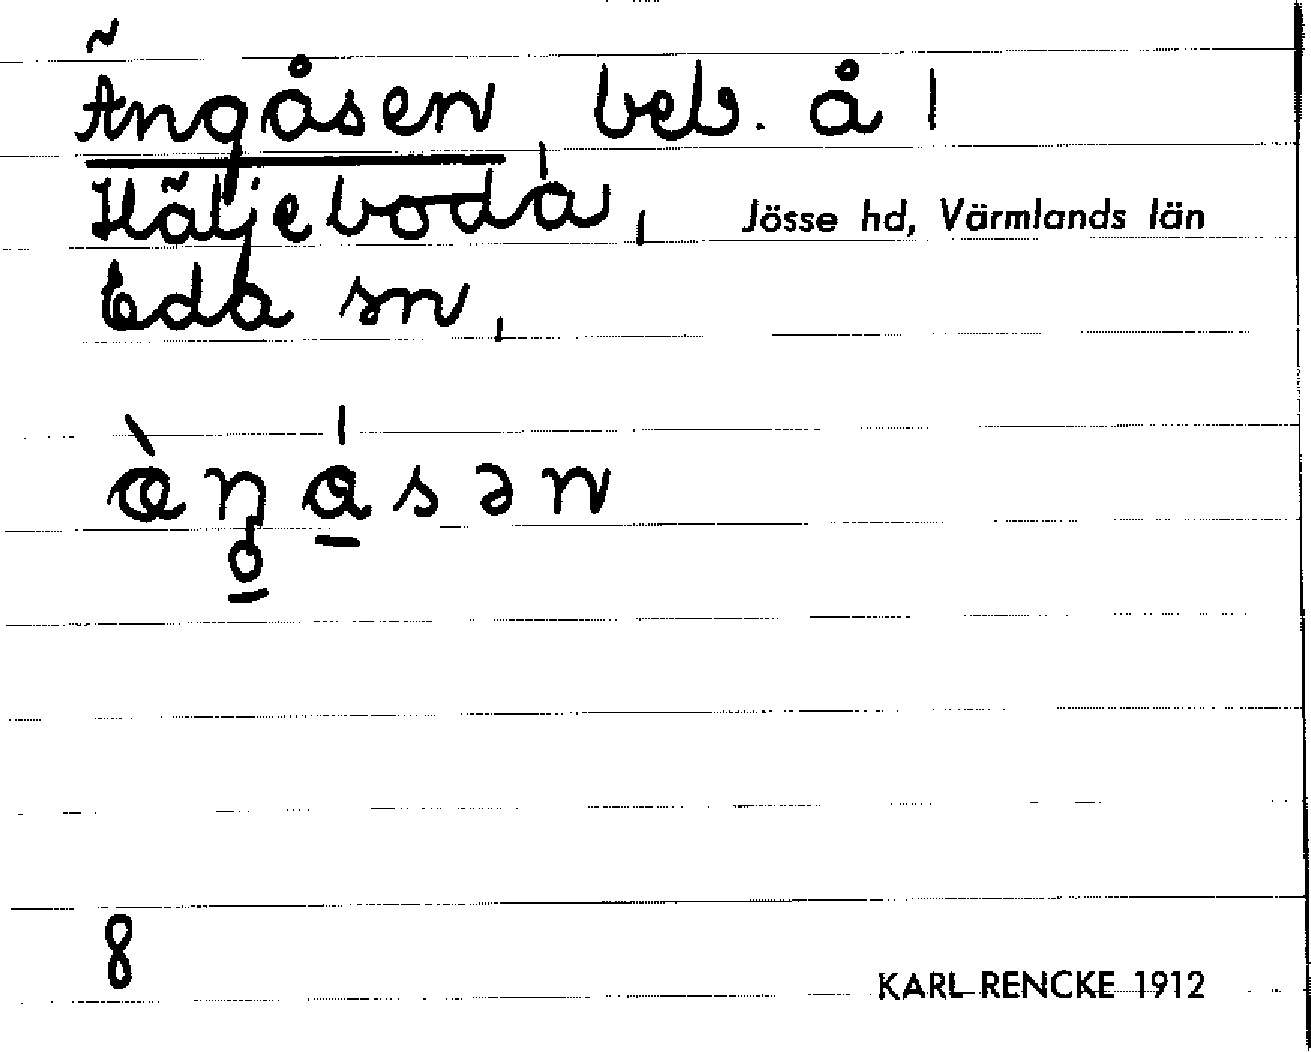 Ängåsen beb. å |
Häljeboda, Jösse hd, Värmlands län
Eda sn,
8
KARL RENCKE 1912